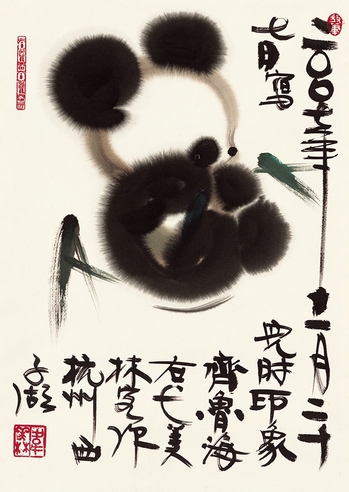 二〇〇七年十一月二十
七日寫
此时印象
齊魯海
右美
林客作
杭州西
子湖